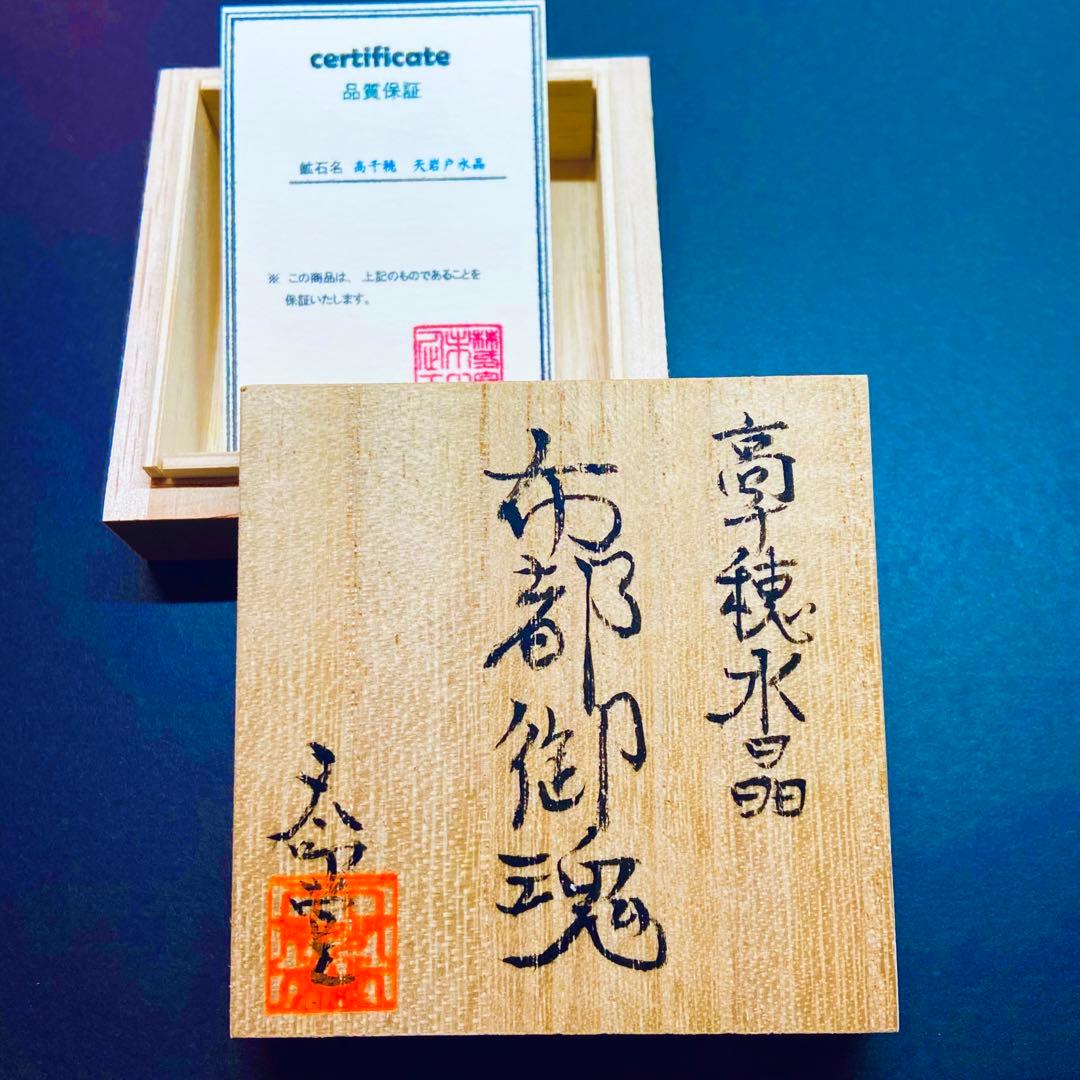 certificate
品質保証
鉱石名 高千穂 天岩戸水晶
※ この商品は、上記のものであることを
保証いたします。
高千穂水晶
布都御魂
天命堂